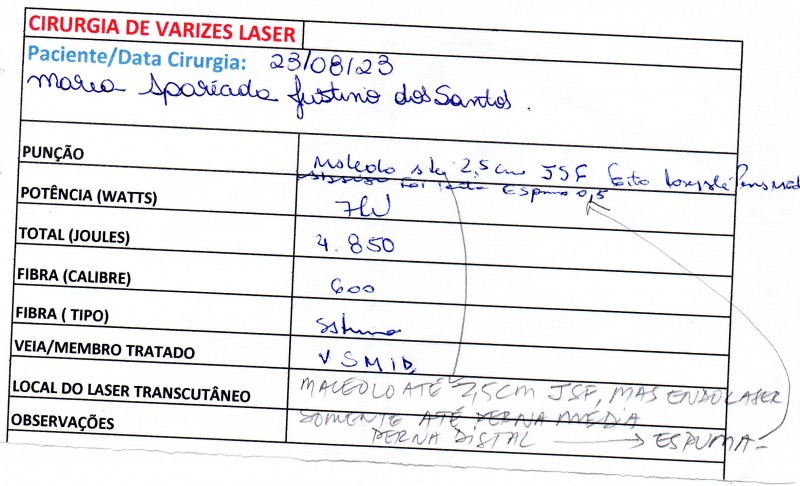 CIRURGIA DE VARIZES LASER
Paciente/Data Cirurgia: 23/08/23
Maria Aparecida Justino dos Santos.
PUNÇÃO
Maleolo 2,5 cm JSF feito
foi feita Espuma 0,5
POTÊNCIA (WATTS) 7W
TOTAL (JOULES) 4.850
FIBRA (CALIBRE) 600
FIBRA ( TIPO)
VEIA/MEMBRO TRATADO VSMID
LOCAL DO LASER TRANSCUTÂNEO MALEOLO ATÉ 2,5CM JSF, MAS ENDOLASER
OBSERVAÇÕES SOMENTE ATÉ PERNA MEDIA
PERNA DISTAL → ESPUMA